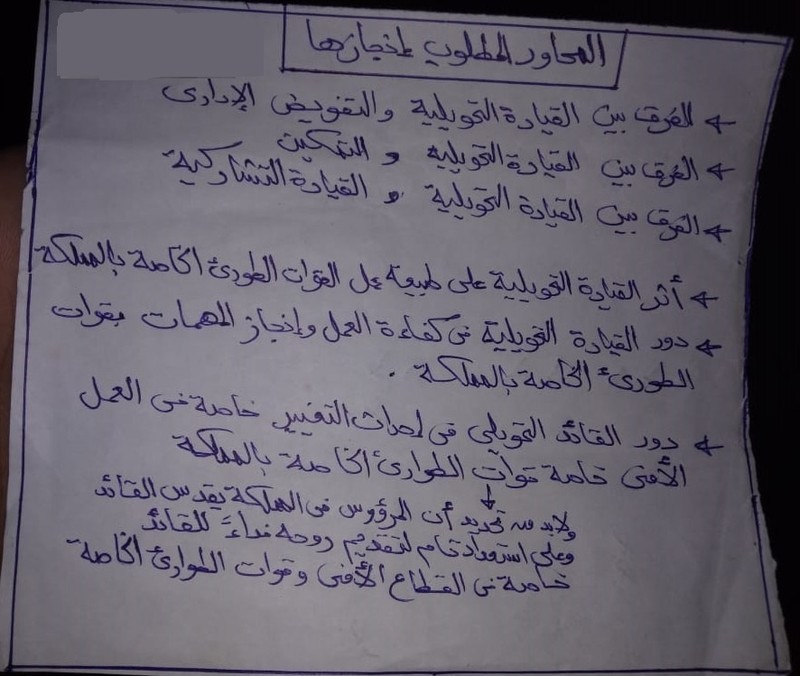 المحاور المطلوب إنجازها
← الفرق بين القيادة التحويلية والتفويض الإدارى
← الفرق بين القيادة التحويلية و التمكين
← الفرق بين القيادة التحويلية و القيادة التشاركية
← أثر القيادة التحويلية على طبيعة عمل القوات الطوارئ الخاصة بالمملكة
← دور القيادة التحويلية فى كفاءة العمل وإنجاز المهمات بقوات
الطوارئ الخاصة بالمملكة .
← دور القائد التحويلى فى إحداث التغيير خاصة فى العمل
الأمنى خاصة قوات الطوارئ الخاصة بالمملكة
ولابد من تحديد أن المرؤوس فى المملكة يقدس القائد
وعلى استعداد تام لتقديم روحه فداءً للقائد
خاصة فى القطاع الأمنى وقوات الطوارئ الخاصة